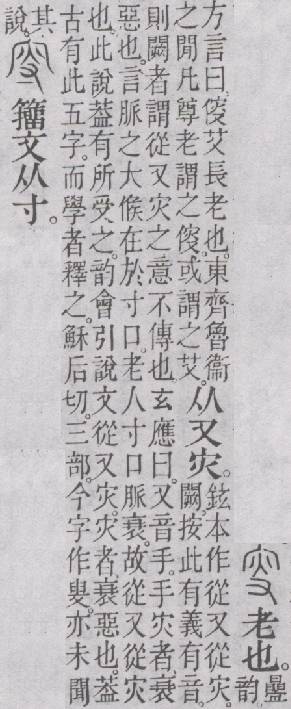 老也。曡
韵
方言曰。傁艾長老也。東齊魯衞
之閒凡尊老謂之傁。或謂之艾。
从又灾。
鉉本作從又從灾。
闕。按此有義有音。
則闕者謂從又灾之意不傳也。玄應曰。又音手。手灾者。衰
惡也。言脈之大候在於寸口。老人寸口脈衰。故從又從灾
也。此說葢有所受之。韵會引說文從又灾。灾者。衰惡也。葢
古有此五字。而學者釋之。穌后切。三部。今字作叟。亦未聞
其
說。
籒文从寸。